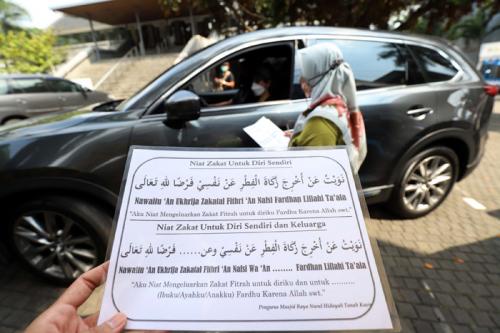 Niat Zakat Untuk Diri Sendiri
نَوَيْتُ عَنْ أُخْرِجَ زَكَاةَ الْفِطْرِ عَنْ نَفْسِيْ فَرْضًا لِلّٰهِ تَعَالَى
Nawaitu 'An Ekhrija Zakatal Fithri 'An Nafsi Fardhan Lillahi Ta'ala
"Aku Niat Mengeluarkan Zakat Fitrah untuk diriku Fardhu Karena Allah swt."
Niat Zakat Untuk Diri Sendiri dan Keluarga
نَوَيْتُ عَنْ أُخْرِجَ زَكَاةَ الْفِطْرِ عَنْ نَفْسِيْ وعن...... فَرْضًا لِلّٰهِ تَعَالَى
Nawaitu 'An Ekhrija Zakatal Fithri 'An Nafsi Wa 'An ........ Fardhan Lillahi Ta'ala
"Aku Niat Mengeluarkan Zakat Fitrah untuk diriku dan untuk ..........
(Ibuku/Ayahku/Anakku) Fardu Karena Allah swt."
Pengurus Masjid Raya Nurul Hidayah Tanah